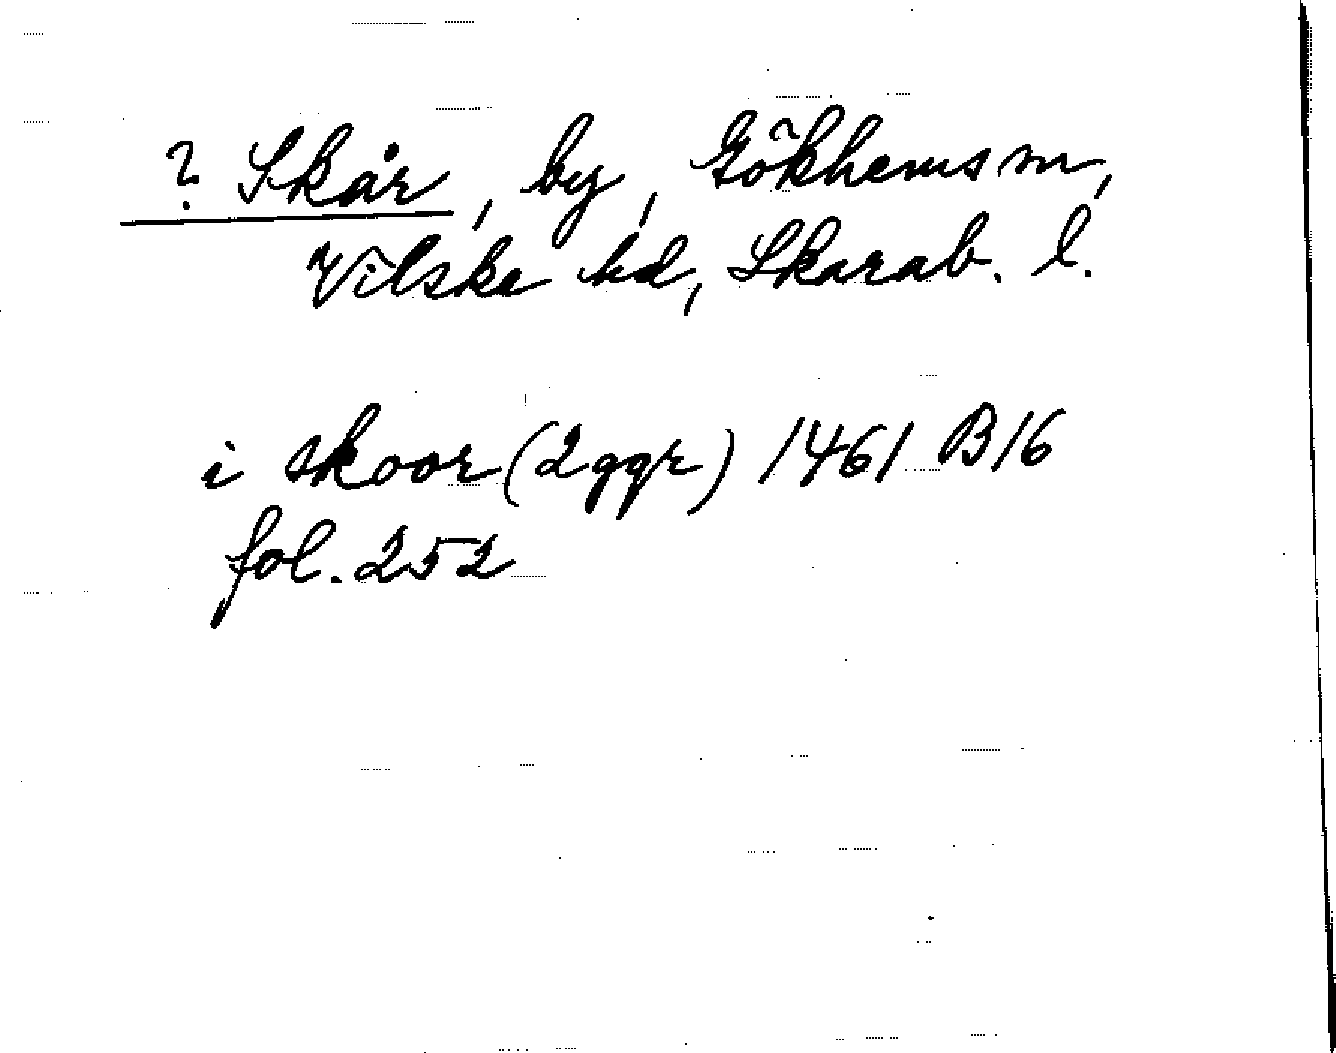 ? Skår, by, Gökhems sn,
Vilske hd, Skarab. l.
i skoor (2 ggr) 1461 B16
fol. 252